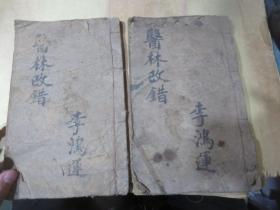 醫林改錯
李鴻運
醫林改錯
李鴻運